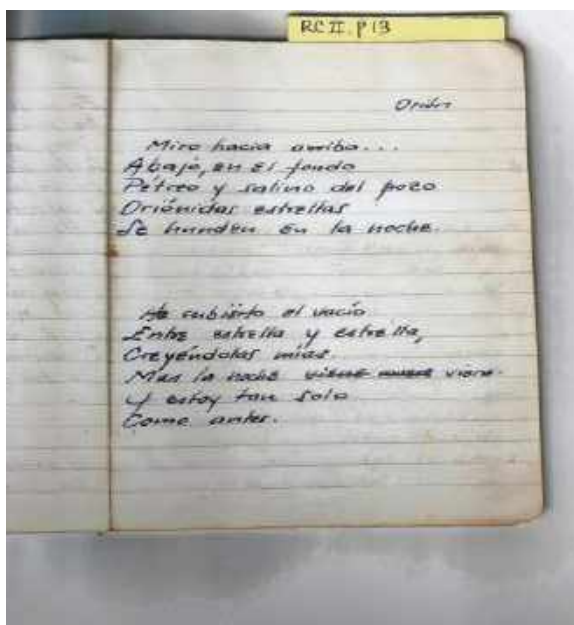 RC II. P 13
Orión
Miro hacia arriba...
Abajo, en el fondo
Pétreo y salino del pozo
Oriónidas estrellas
Se hunden en la noche.
He cubierto el vacío
Entre estrella y estrella,
Creyéndolas mías.
Mas la noche viene viene
Y estoy tan solo
Como antes.